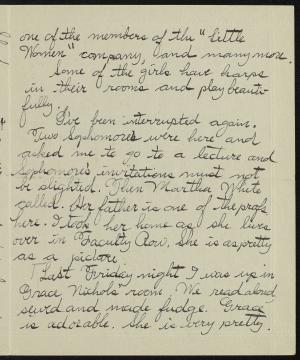 one of the members of the "Little
Women" company, and many more.
Some of the girls have harps
in their rooms and play beauti-
fully.
I've been interrupted again.
Two sophomores were here and
asked me to go to a lecture and
sophomore's invitations must not
be slighted. Then Martha White
called. Her father is one of the profs
here. I took her home as she lives
over in Faculty Row. She is as pretty
as a picture.
Last Friday night I was up in
Grace Nichols' room. We read aloud
sewed and made fudge. Grace
is adorable. She is very pretty.